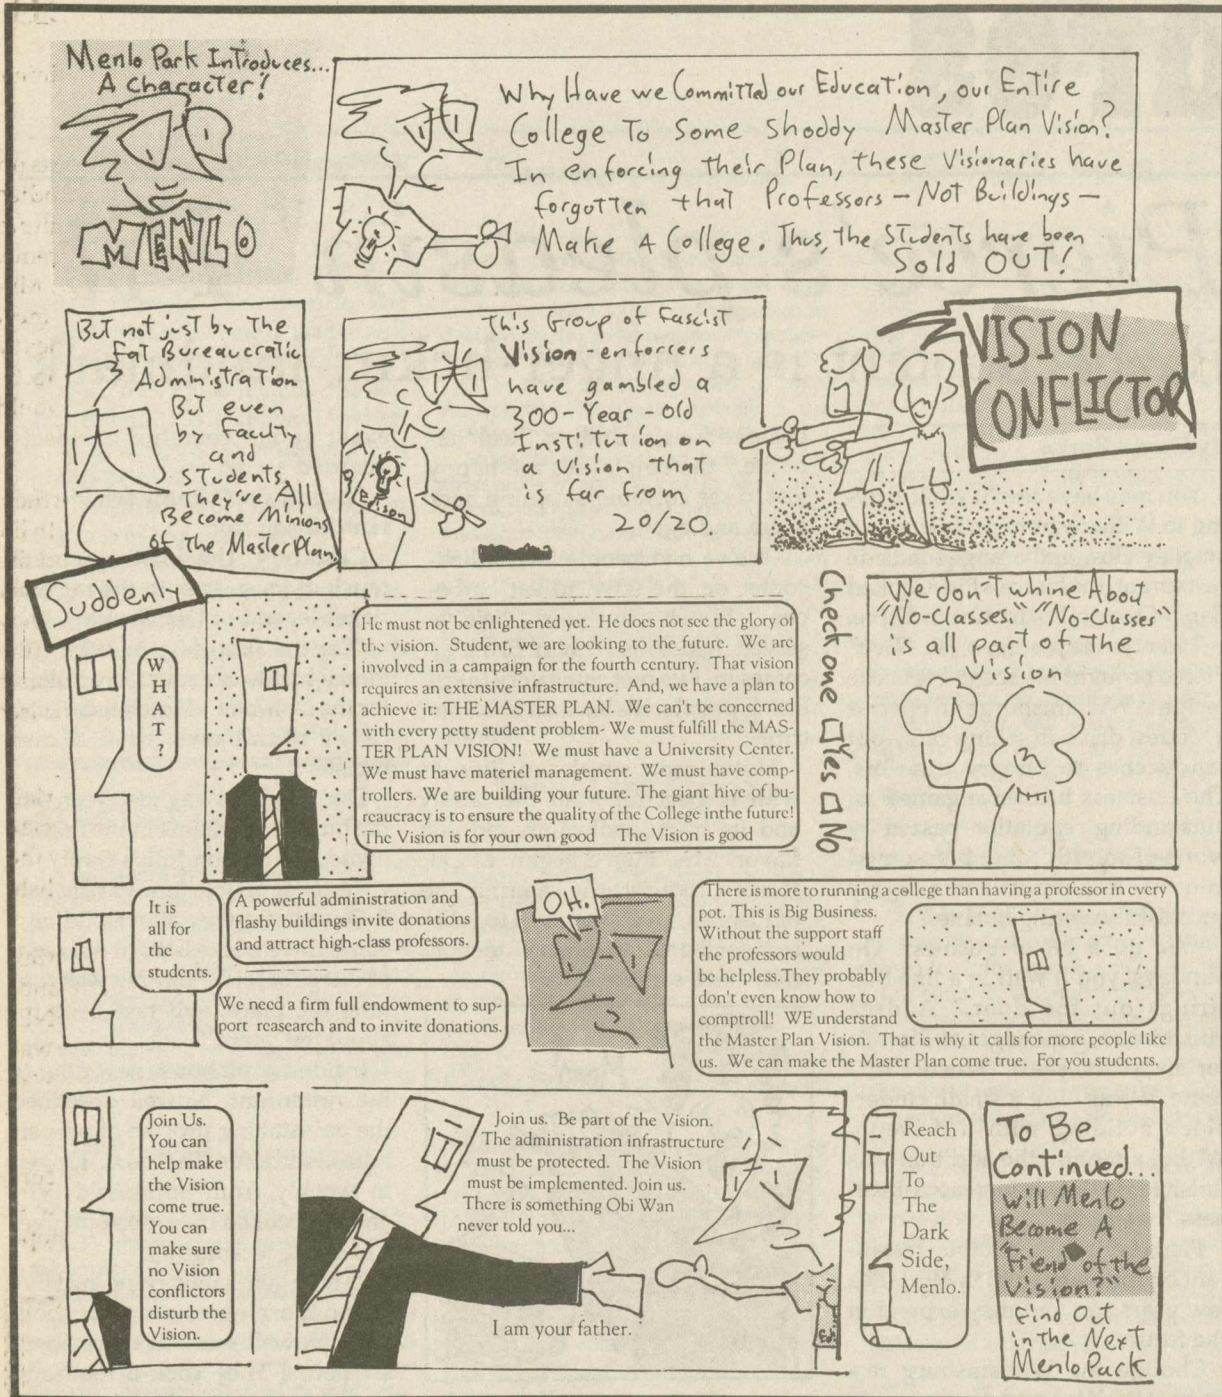 Menlo Park Introduces...
A Character!
MENLO
Why Have we Committed our Education, our Entire
College To Some Shoddy Master Plan Vision?
In enforcing their Plan, these Visionaries have
forgotten that Professors — Not Buildings —
Make A College. Thus, the Students have been
Sold OUT!
But not just by The
Fat Bureaucratic
Administration
But even
by Faculty
and
Students.
They've All
Become Minions
of the Master Plan
This Group of Fascist
Vision-enforcers
have gambled a
300-Year-old
Institution on
a Vision that
is far from
20/20.
Edison
VISION
CONFLICTOR
Suddenly
W
H
A
T
?
He must not be enlightened yet. He does not see the glory of
the vision. Student, we are looking to the future. We are
involved in a campaign for the fourth century. That vision
requires an extensive infrastructure. And, we have a plan to
achieve it: THE MASTER PLAN. We can't be concerned
with every petty student problem- We must fulfill the MAS-
TER PLAN VISION! We must have a University Center.
We must have materiel management. We must have comp-
trollers. We are building your future. The giant hive of bu-
reaucracy is to ensure the quality of the College inthe future!
The Vision is for your own good The Vision is good
Check one □Yes □No
We don't whine About
"No-Classes." "No-Classes"
is all part of the
Vision
It is
all for
the
students.
A powerful administration and
flashy buildings invite donations
and attract high-class professors.
We need a firm full endowment to sup-
port reasearch and to invite donations.
OH.
There is more to running a college than having a professor in every
pot. This is Big Business.
Without the support staff
the professors would
be helpless.They probably
don't even know how to
comptroll! WE understand
the Master Plan Vision. That is why it calls for more people like
us. We can make the Master Plan come true. For you students.
Join Us.
You can
help make
the Vision
come true.
You can
make sure
no Vision
conflictors
disturb the
Vision.
Join us. Be part of the Vision.
The administration infrastructure
must be protected. The Vision
must be implemented. Join us.
There is something Obi Wan
never told you...
I am your father.
Ed.
Reach
Out
To
The
Dark
Side,
Menlo.
To Be
Continued...
Will Menlo
Become A
"Friend of the
Vision?"
Find Out
in the Next
Menlo Park